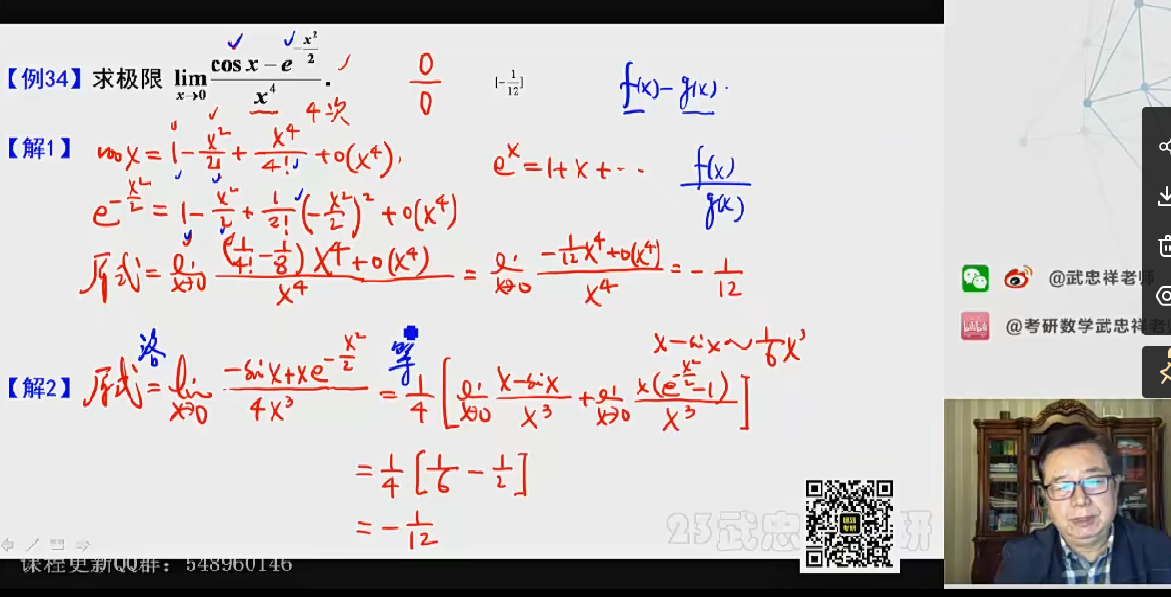 【例34】求极限 lim x→0 (cos x − e^(−x²/2)) / x⁴ .
0/0
[−1/12]
f(x) − g(x).
4次
【解1】 cos x = 1 − x²/2! + x⁴/4! + o(x⁴),
e^x = 1 + x + ···
f(x)/g(x)
e^(−x²/2) = 1 − x²/2 + 1/2! (−x²/2)² + o(x⁴)
原式 = lim x→0 ((1/4! − 1/8) x⁴ + o(x⁴)) / x⁴ = lim x→0 (−1/12 x⁴ + o(x⁴)) / x⁴ = − 1/12
x − sin x ~ 1/6 x³
洛 等
【解2】 原式 = lim x→0 (−sin x + x e^(−x²/2)) / 4x³ = 1/4 [ lim x→0 (x − sin x)/x³ + lim x→0 x(e^(−x²/2) − 1)/x³ ]
= 1/4 [ 1/6 − 1/2 ]
= − 1/12
@武忠祥老师
@考研数学武忠祥老
课程更新QQ群：548960146